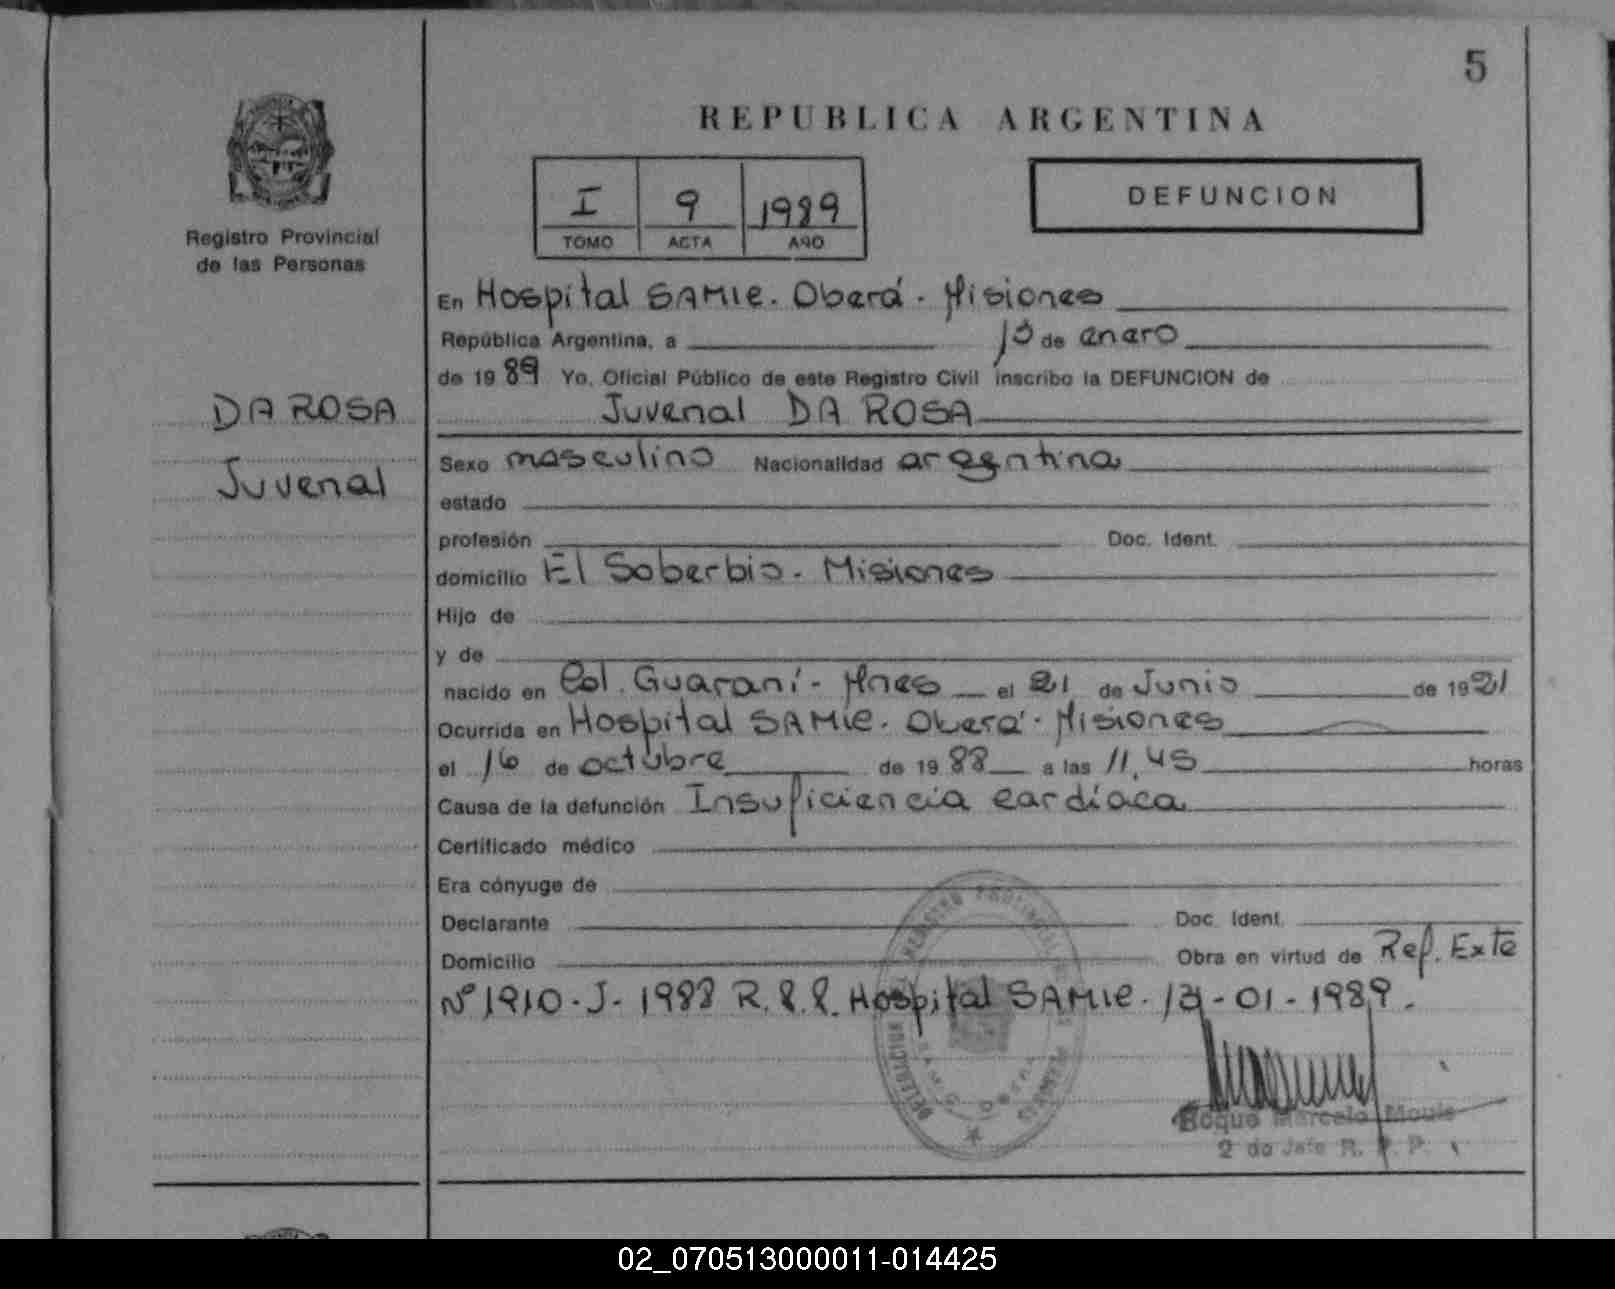 5
REPUBLICA ARGENTINA
I 9 1989
TOMO ACTA AÑO
DEFUNCION
Registro Provincial
de las Personas
DA ROSA
Juvenal
En Hospital SAMIC. Oberá. Misiones
República Argentina, a 13 de enero
de 1989 Yo, Oficial Público de este Registro Civil inscribo la DEFUNCION de
Juvenal DA ROSA
Sexo masculino Nacionalidad argentina
estado
profesión Doc. Ident.
domicilio El Soberbio. Misiones
Hijo de
y de
nacido en Col. Guaraní - Mnes el 21 de Junio de 1921
Ocurrida en Hospital SAMIC. Oberá. Misiones
el 16 de octubre de 1988 a las 11,45 horas
Causa de la defunción Insuficiencia cardíaca
Certificado médico
Era cónyuge de
Declarante Doc. Ident.
Domicilio Obra en virtud de Ref. Exte
Nº 1910-J-1988 R.P.P. Hospital SAMIC. 13-01-1989.
Roque Marcelo
2 do Jefe R. P. P.
02_070513000011-014425